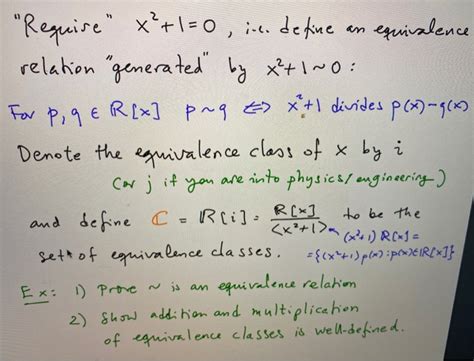 "Require" x²+1=0, i.e. define an equivalence
relation "generated" by x²+1~0:
For p,q ∈ ℝ[x] p~q ⟺ x²+1 divides p(x)-q(x)
Denote the equivalence class of x by i
(or j if you are into physics/engineering)
and define ℂ = ℝ[i] = ℝ[x]/<x²+1> to be the
set of equivalence classes.
(x²+1)ℝ[x] =
={(x²+1)p(x):p(x)∈ℝ[x]}
Ex: 1) Prove ~ is an equivalence relation
2) Show addition and multiplication
of equivalence classes is well-defined.